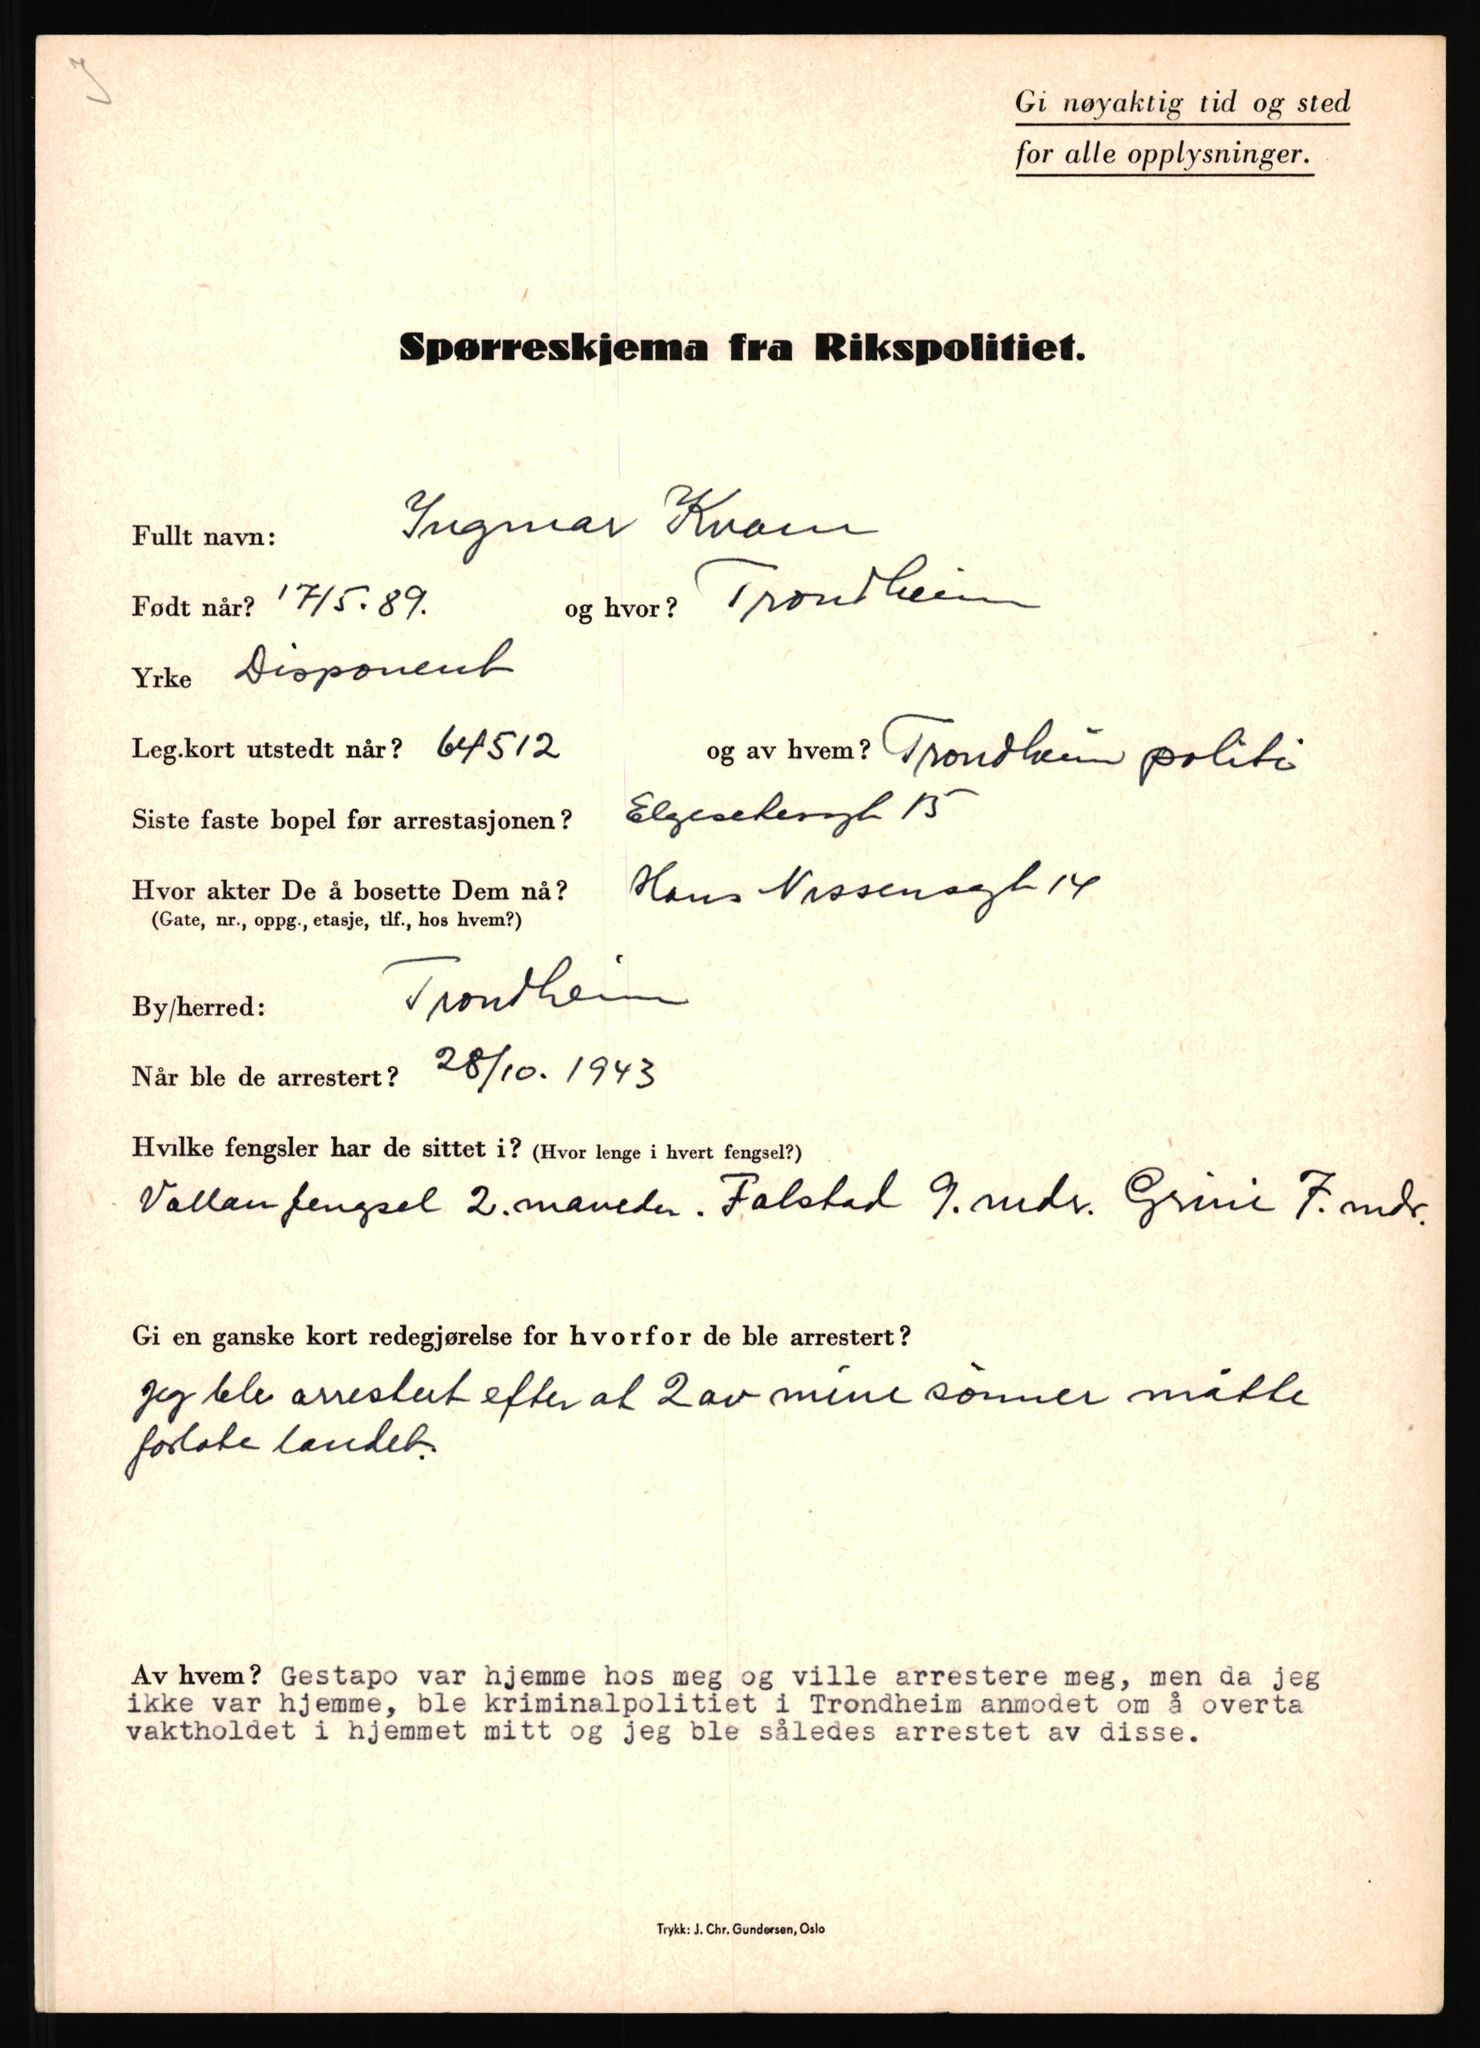 Gi nøyaktig tid og sted
for alle opplysninger.
Spørreskjema fra Rikspolitiet.
Fullt navn: Ingmar Kvam
Født når? 17/5.89. og hvor? Trondheim
Yrke Disponent
Leg.kort utstedt når? 64512 og av hvem? Trondheim politi
Siste faste bopel før arrestasjonen? Elgesetergt 15
Hvor akter De å bosette Dem nå? Hans Nissensgt 14
(Gate, nr., oppg., etasje, tlf., hos hvem?)
By/herred: Trondheim
Når ble de arrestert? 28/10. 1943
Hvilke fengsler har de sittet i? (Hvor lenge i hvert fengsel?)
Vollan fengsel 2. måneder. Falstad 9. mdr. Grini 7. mdr.
Gi en ganske kort redegjørelse for hvorfor de ble arrestert?
Jeg ble arrestert efter at 2 av mine sønner måtte
forlate landet.
Av hvem? Gestapo var hjemme hos meg og ville arrestere meg, men da jeg
ikke var hjemme, ble kriminalpolitiet i Trondheim anmodet om å overta
vaktholdet i hjemmet mitt og jeg ble således arrestet av disse.
Trykk: J. Chr. Gundersen, Oslo